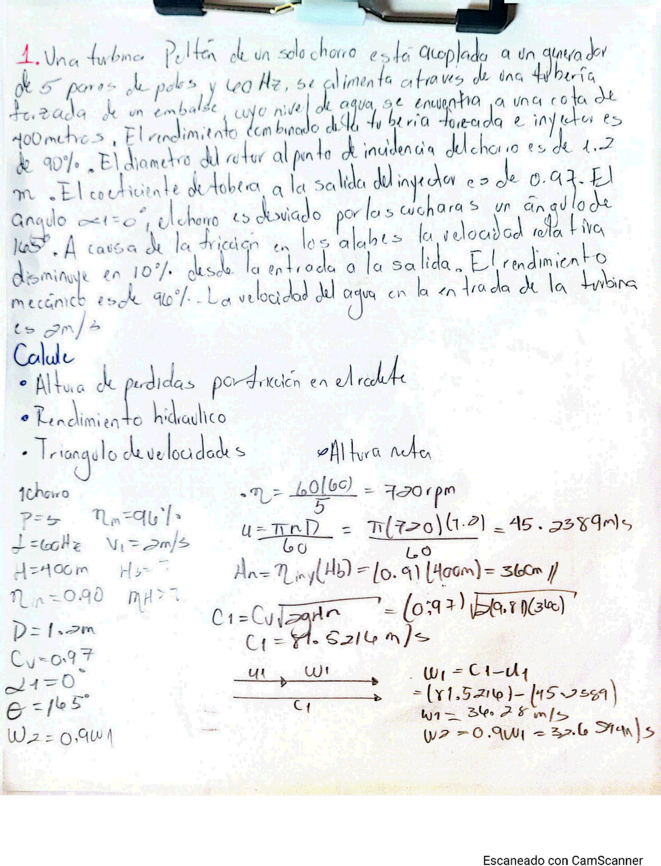 1. Una turbina Pelton de un solo chorro está acoplada a un generador
de 5 pares de polos y 60 Hz, se alimenta a traves de una tubería
forzada de un embalse, cuyo nivel de agua, se encuentra, a una cota de
400 metros. El rendimiento combinado de la tubería forzada e inyector es
de 90%. El diametro del rotor al punto de incidencia del chorro es de 1.2
m. El coeficiente de tobera a la salida del inyector es de 0.97. El
angulo α1=0°, el chorro es desviado por las cucharas un ángulo de
165°. A causa de la fricción en los alabes la velocidad relativa
disminuye en 10% desde la entrada a la salida. El rendimiento
mecánico es de 96%. La velocidad del agua en la entrada de la turbina
es 2m/s
Calule
• Altura de perdidas por fricción en el rodete
• Rendimiento hidraulico
• Triangulo de velocidades
• Altura neta
1chorro
P=5 ηm=96%
f=60Hz V1=2m/s
H=400m
ηin=0.90
D=1.2m
Cv=0.97
α1=0°
θ=165°
W2=0.9W1
• n = 60(60)/5 = 720rpm
u = πnD/60 = π(720)(1.2)/60 = 45.2389m/s
Hn = ηiny(Hb) = (0.9)(400m) = 360m //
C1 = Cv√2gHn = (0.97)√2(9.81)(360)
C1 = 81.5216 m/s
u1 W1
C1
W1 = C1-U1
= (81.5216)-(45.2389)
W1 = 36.28 m/s
W2 = 0.9W1 = 32.654m/s
Escaneado con CamScanner